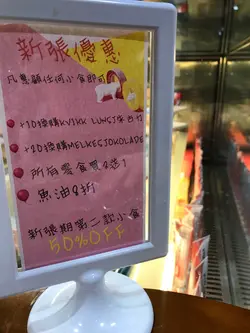 新張優惠
凡惠顧任何小食即可
+10換購KVIKK LUNSJ
+20換購MELKESJOKOLADE
所有零食買2送1
魚油9折
新張期第二款小食
50% OFF